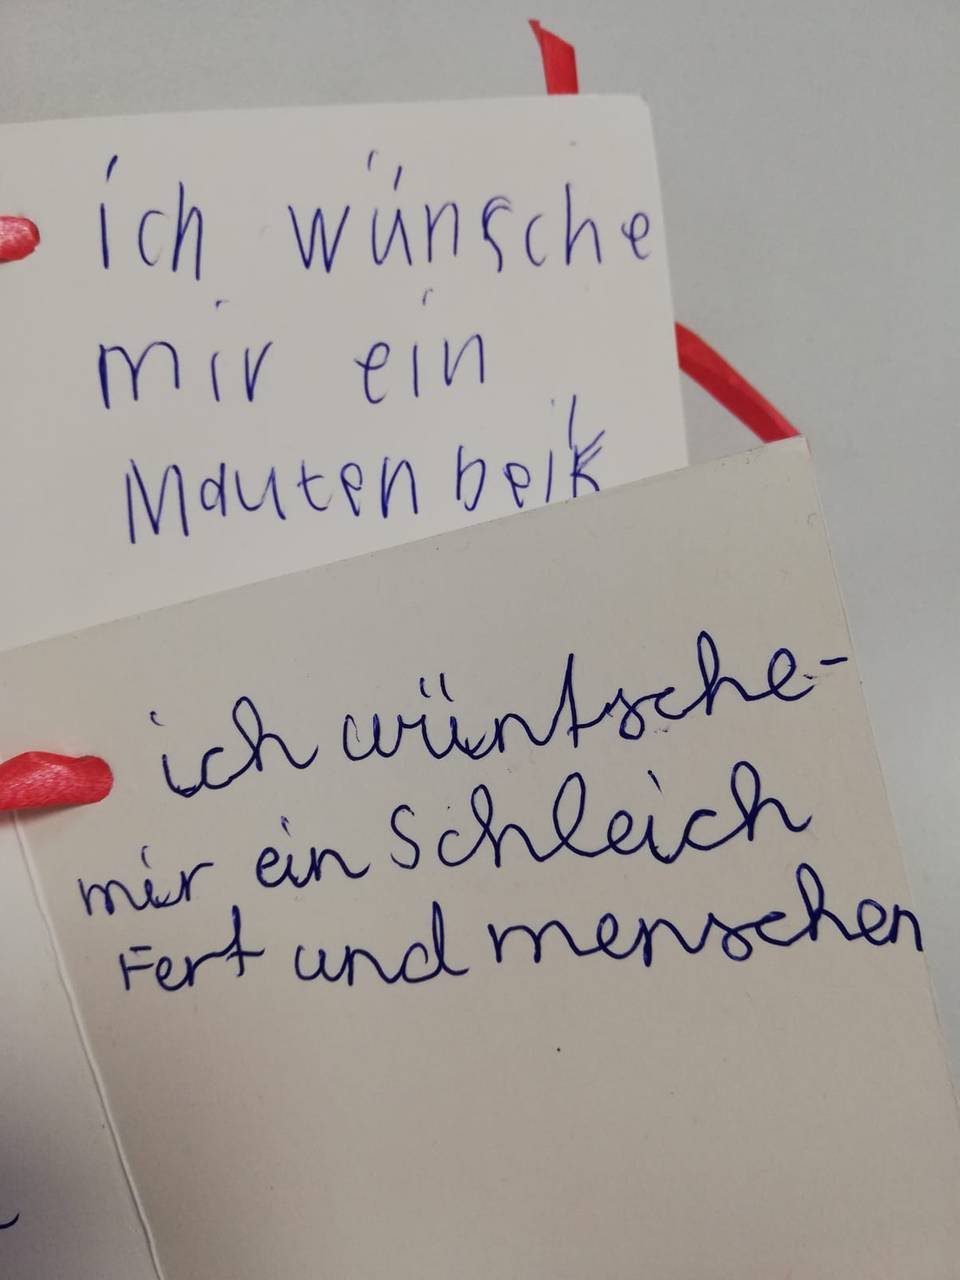 ich wünsche
mir ein
Mauten beik
ich wüntsche-
mir ein Schleich
Fert und menschen